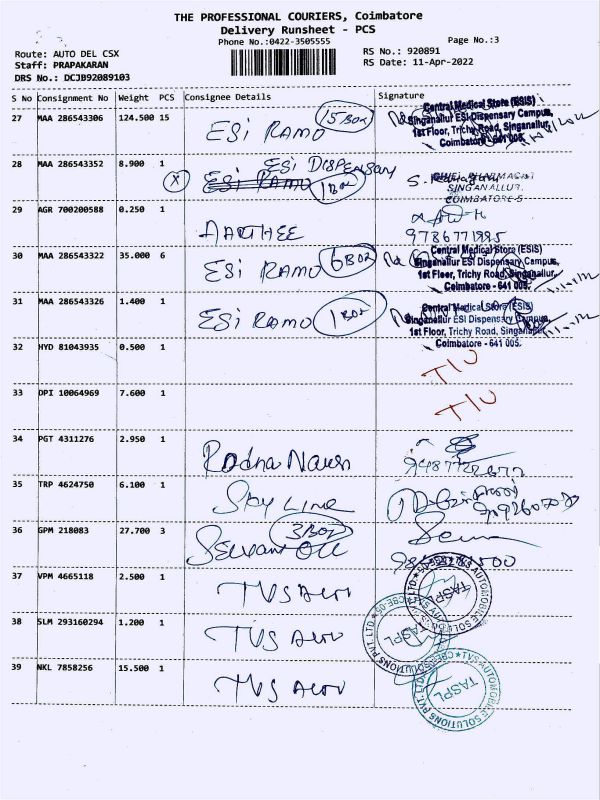 THE PROFESSIONAL COURIERS, Coimbatore
Delivery Runsheet - PCS
Phone No.:0422-3505555
Page No.:3
Route: AUTO DEL CSX
RS No.: 920891
Staff: PRAPAKARAN
RS Date: 11-Apr-2022
DRS No.: DCJB92089103
S No Consignment No Weight PCS Consignee Details Signature
27 MAA 286543306 124.500 15 ESI RAMO 15 BOX
Central Medical Store (ESIS)
Singanallur ESI Dispensary Campus,
1st Floor, Trichy Road, Singanallur,
Coimbatore - 641 005.
28 MAA 286543352 8.900 1 ESI DISPENSARY
X ESI RAMO 1 BOX
SINGANALLUR
COIMBATORE-5
29 AGR 700200588 0.250 1
AARTHEE 9786771995
30 MAA 286543322 35.000 6 ESI RAMO 6 BOX
Central Medical Store (ESIS)
Singanallur ESI Dispensary Campus,
1st Floor, Trichy Road, Singanallur,
Coimbatore - 641 005.
31 MAA 286543326 1.400 1 ESI RAMO 1 BOX
Central Medical Store (ESIS)
Singanallur ESI Dispensary Campus,
1st Floor, Trichy Road, Singanallur,
Coimbatore - 641 005.
32 HYD 81043935 0.500 1
33 DPI 10064969 7.600 1
34 PGT 4311276 2.950 1
35 TRP 4624750 6.100 1 Sky Line
36 GPM 218083 27.700 3 3 BOX
37 VPM 4665118 2.500 1 TVS Auto
TVS AUTOMOBILE SOLUTIONS PVT. LTD. CBE-05
TASPL
38 SLM 293160294 1.200 1 TVS Auto
TVS AUTOMOBILE SOLUTIONS PVT. LTD. CBE-05
TASPL
39 NKL 7858256 15.500 1 TVS Auto
TVS AUTOMOBILE SOLUTIONS PVT. LTD. CBE-05
TASPL